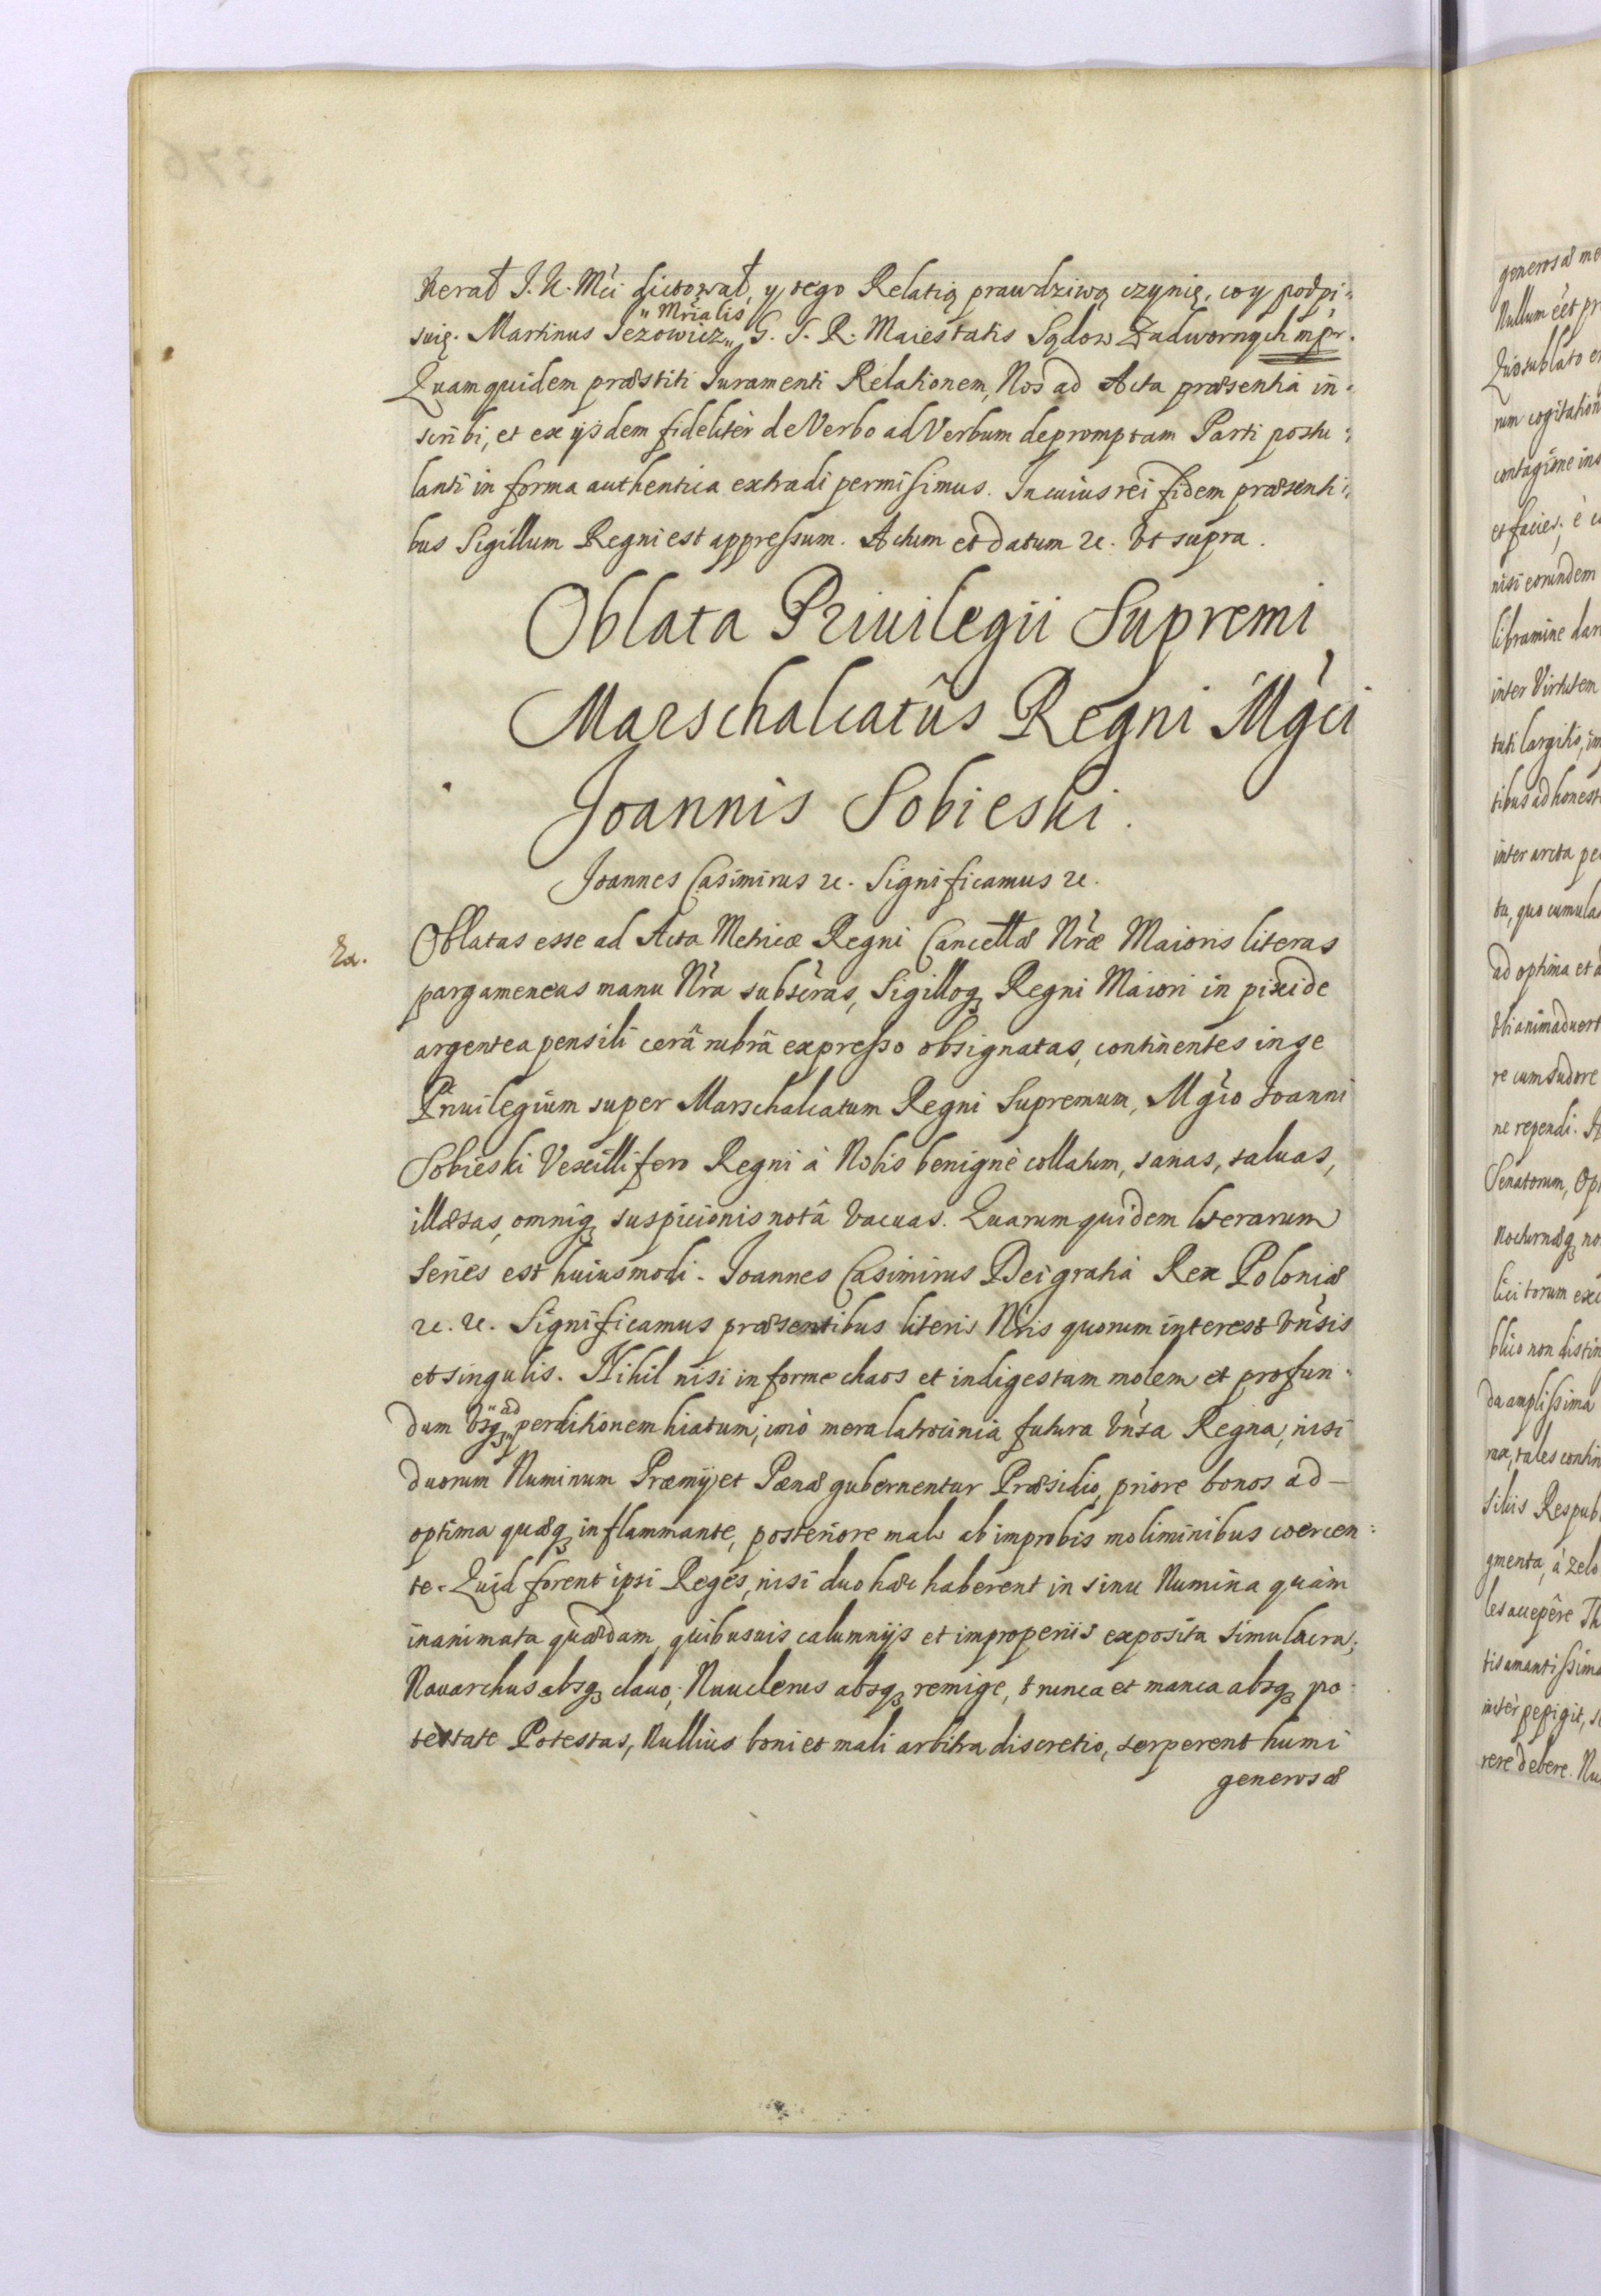 nerał J. K. Mći dictował, y tego Relatią prawdziwą czynię, co y podpi-
suię. Martinus Jezowicz Mrialis G. S. R. Maiestatis Sądow Zadwornych mpr.
Quam quidem præstiti Iuramenti Relationem, Nos ad Acta præsentia in-
scribi, et ex ijsdem fidelitèr de Verbo ad Verbum depromptam Parti postu-
lanti in forma authentica extradi permisimus. In cuius rei fidem præsenti-
bus Sigillum Regni est appressum. Actum et datum &c. Vt supra.
Oblata Priuilegii Supremi
Marschalcatûs Regni Mgci
Joannis Sobieski.
Joannes Casimirus &c. Significamus &c.
Oblatas esse ad Acta Metricæ Regni Cancellæ Nræ Maioris literas
pargameneas manu Nra subscras, Sigilloq Regni Maiori in pixide
argentea pensili cerâ rubrâ expresso obsignatas, continentes in se
Priuilegium super Marschalcatum Regni Supremum, Mgco Joanni
Sobieski Vexillifero Regni à Nobis benignè collatum, sanas, saluas,
illæsas, omniq suspicionis notâ vacuas. Quarum quidem literarum
Series est huiusmodi. Joannes Casimirus Dei gratia Rex Poloniæ
&c. &c. Significamus præsentibus literis Nris quorum interest vnsis
et singulis. Nihil nisi informe chaos et indigestam molem et profun-
dum vsq ad perditionem hiatum, imò mera latrocinia futura vnsa Regna, nisi
duorum Numinum Præmij et Pænæ gubernentur Præsidio, priore bonos ad-
optima quæq inflammante, posteriore malos ab improbis moliminibus coercen-
te. Quid forent ipsi Reges, nisi duo hæc haberent in sinu Numina quàm
inanimata quædam, quibusuis calumnijs et improperiis exposita simulacra;
Nauarchus absq clauo, Nauclerus absq remige, trunca et manca absq po-
testate Potestas, Nullius boni et mali arbitra discretio, serperent humi
generosæ